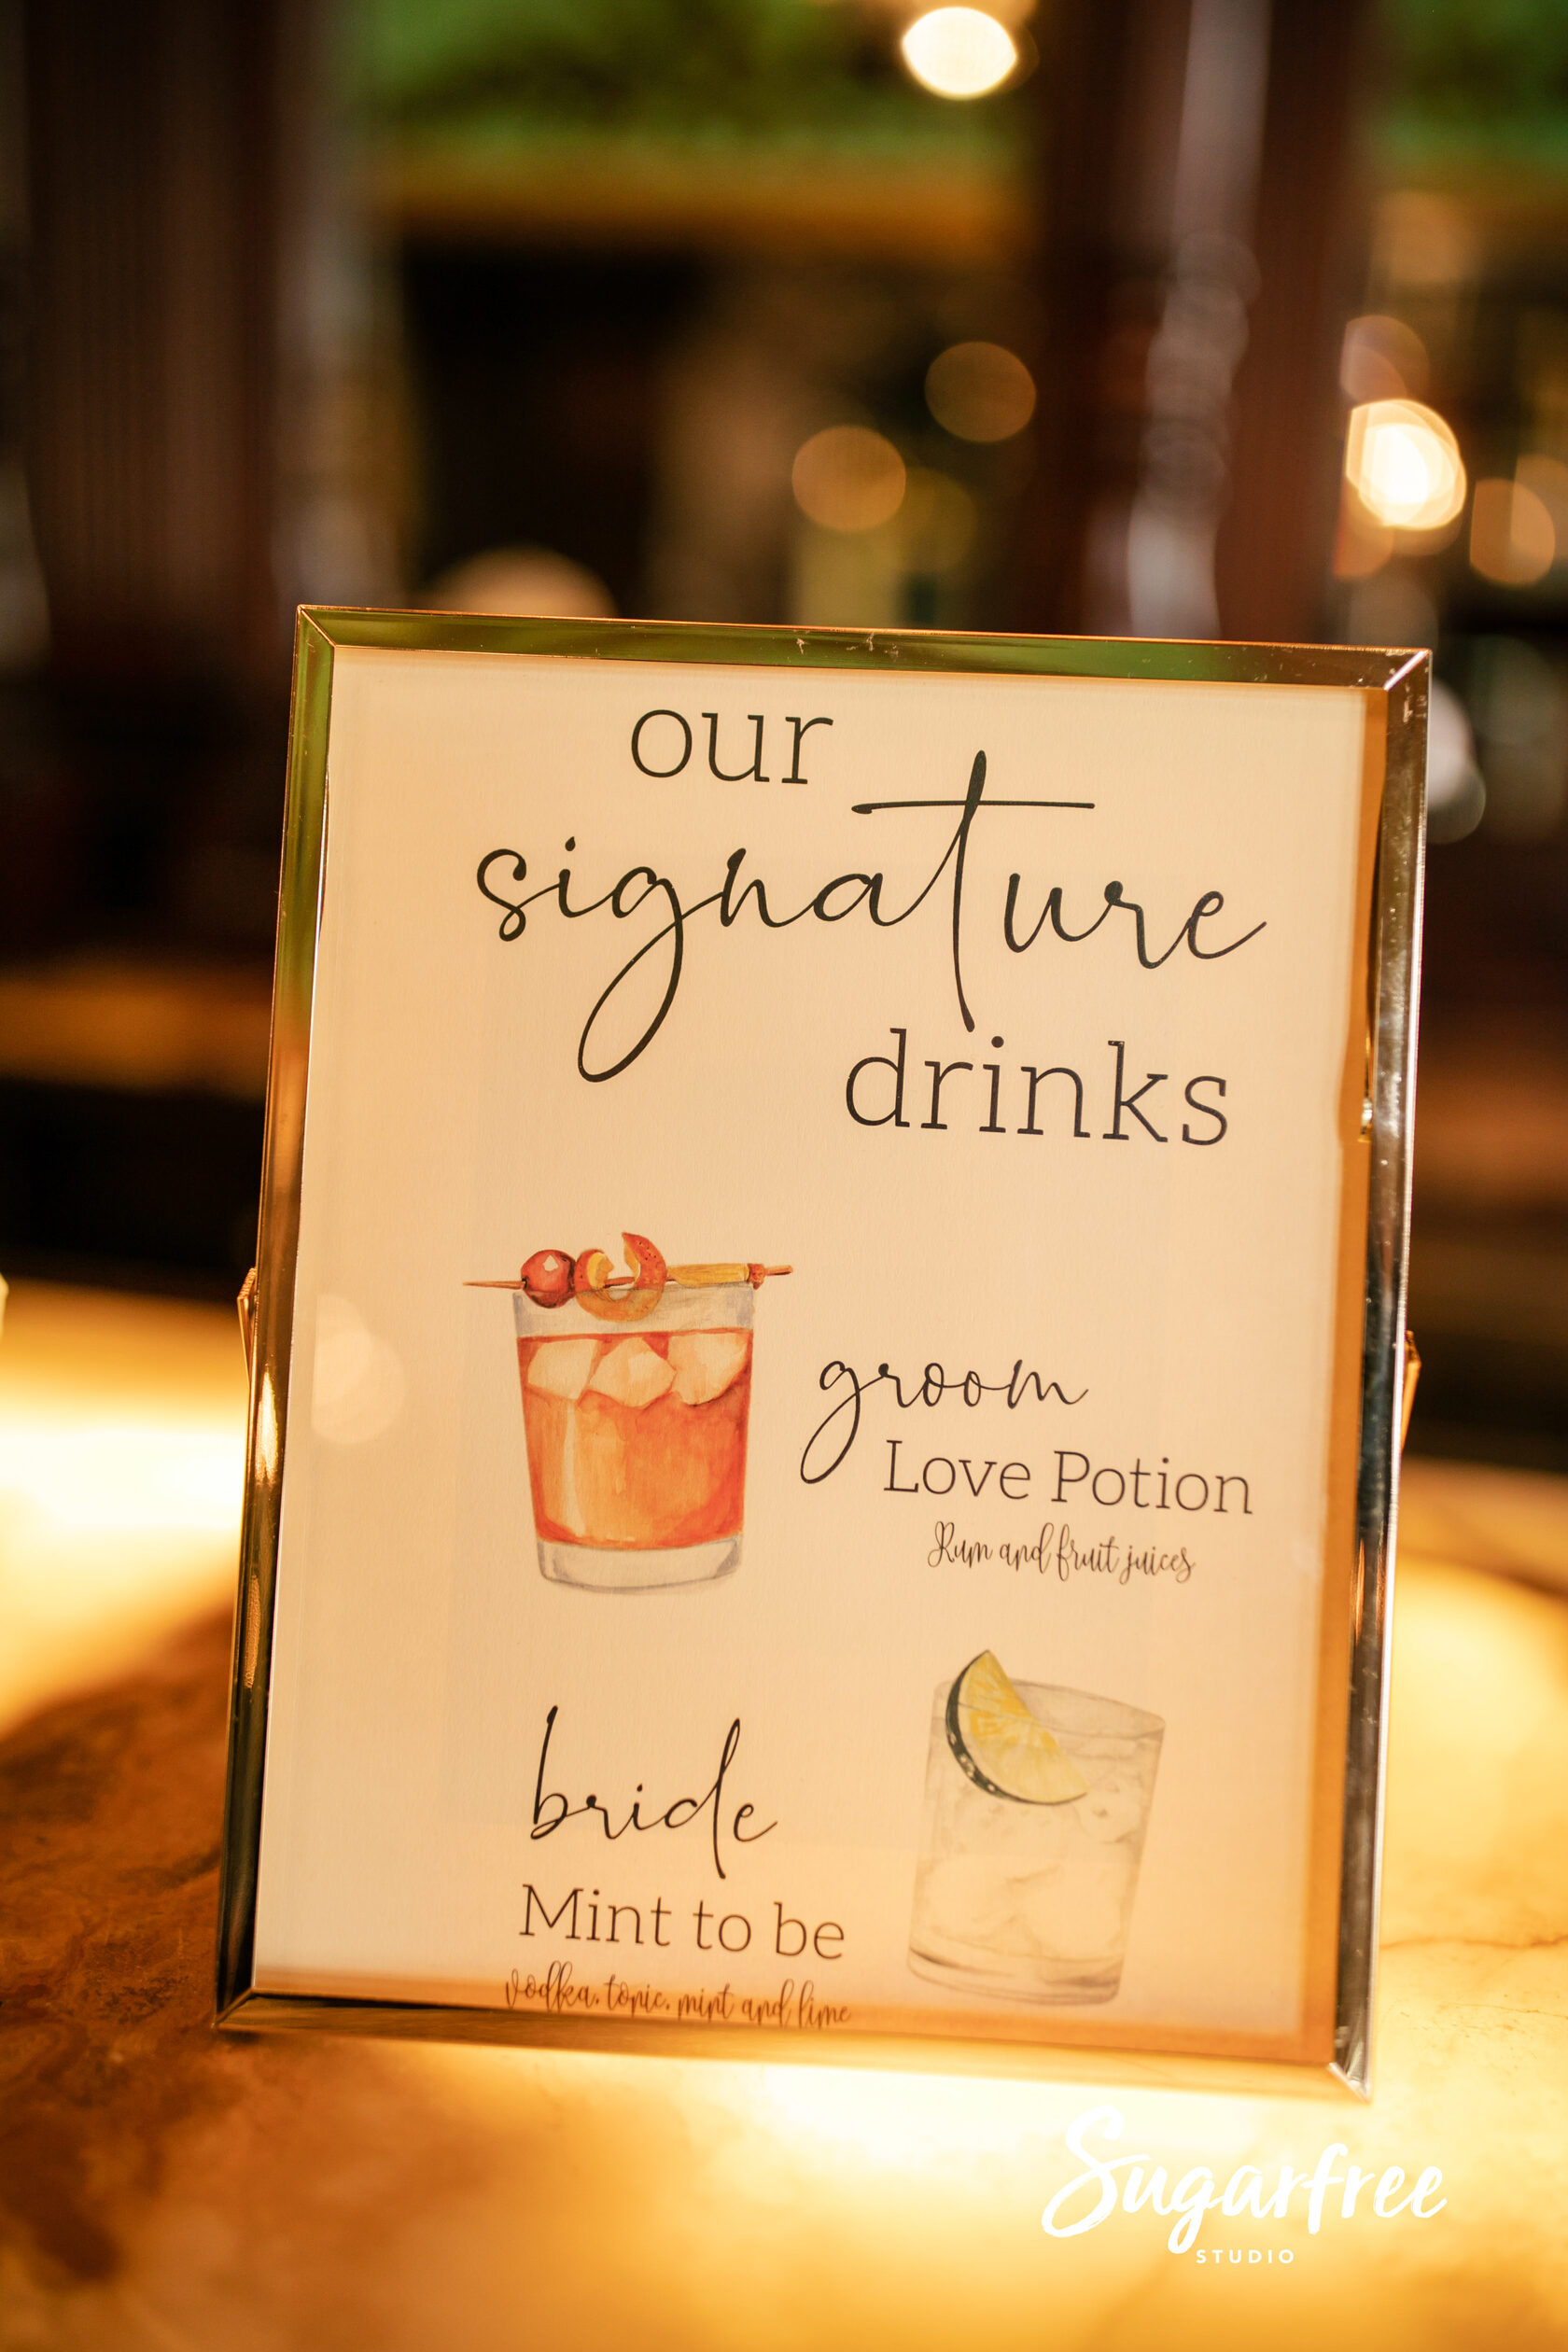 our
signature
drinks
groom
Love Potion
Rum and fruit juices
bride
Mint to be
vodka, tonic, mint and lime
Sugarfree
STUDIO